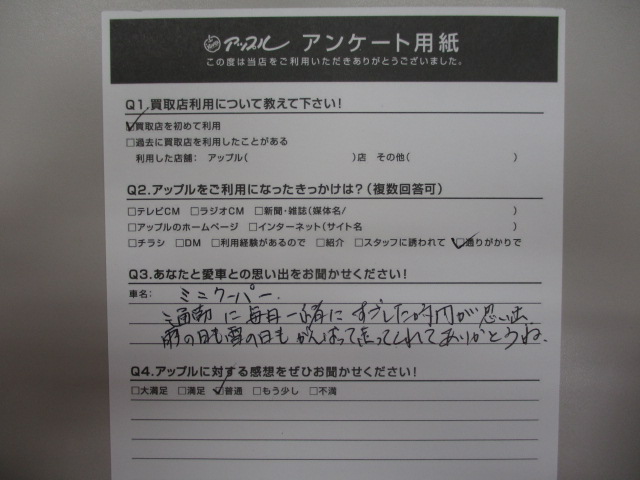 アップル アンケート用紙
この度は当店をご利用いただきありがとうございました。
Q1.買取店利用について教えて下さい!
☑買取店を初めて利用
□過去に買取店を利用したことがある
利用した店舗: アップル( )店 その他( )
Q2.アップルをご利用になったきっかけは?(複数回答可)
□テレビCM □ラジオCM □新聞・雑誌(媒体名/ )
□アップルのホームページ □インターネット(サイト名 )
□チラシ □DM □利用経験があるので □紹介 □スタッフに誘われて ☑通りがかりで
Q3.あなたと愛車との思い出をお聞かせください!
車名: ミニクーパー.
通勤に毎日一緒にすごした時間が思い出
雨の日も雪の日もがんばって走ってくれてありがとうね.
Q4.アップルに対する感想をぜひお聞かせください!
□大満足 □満足 ☑普通 □もう少し □不満